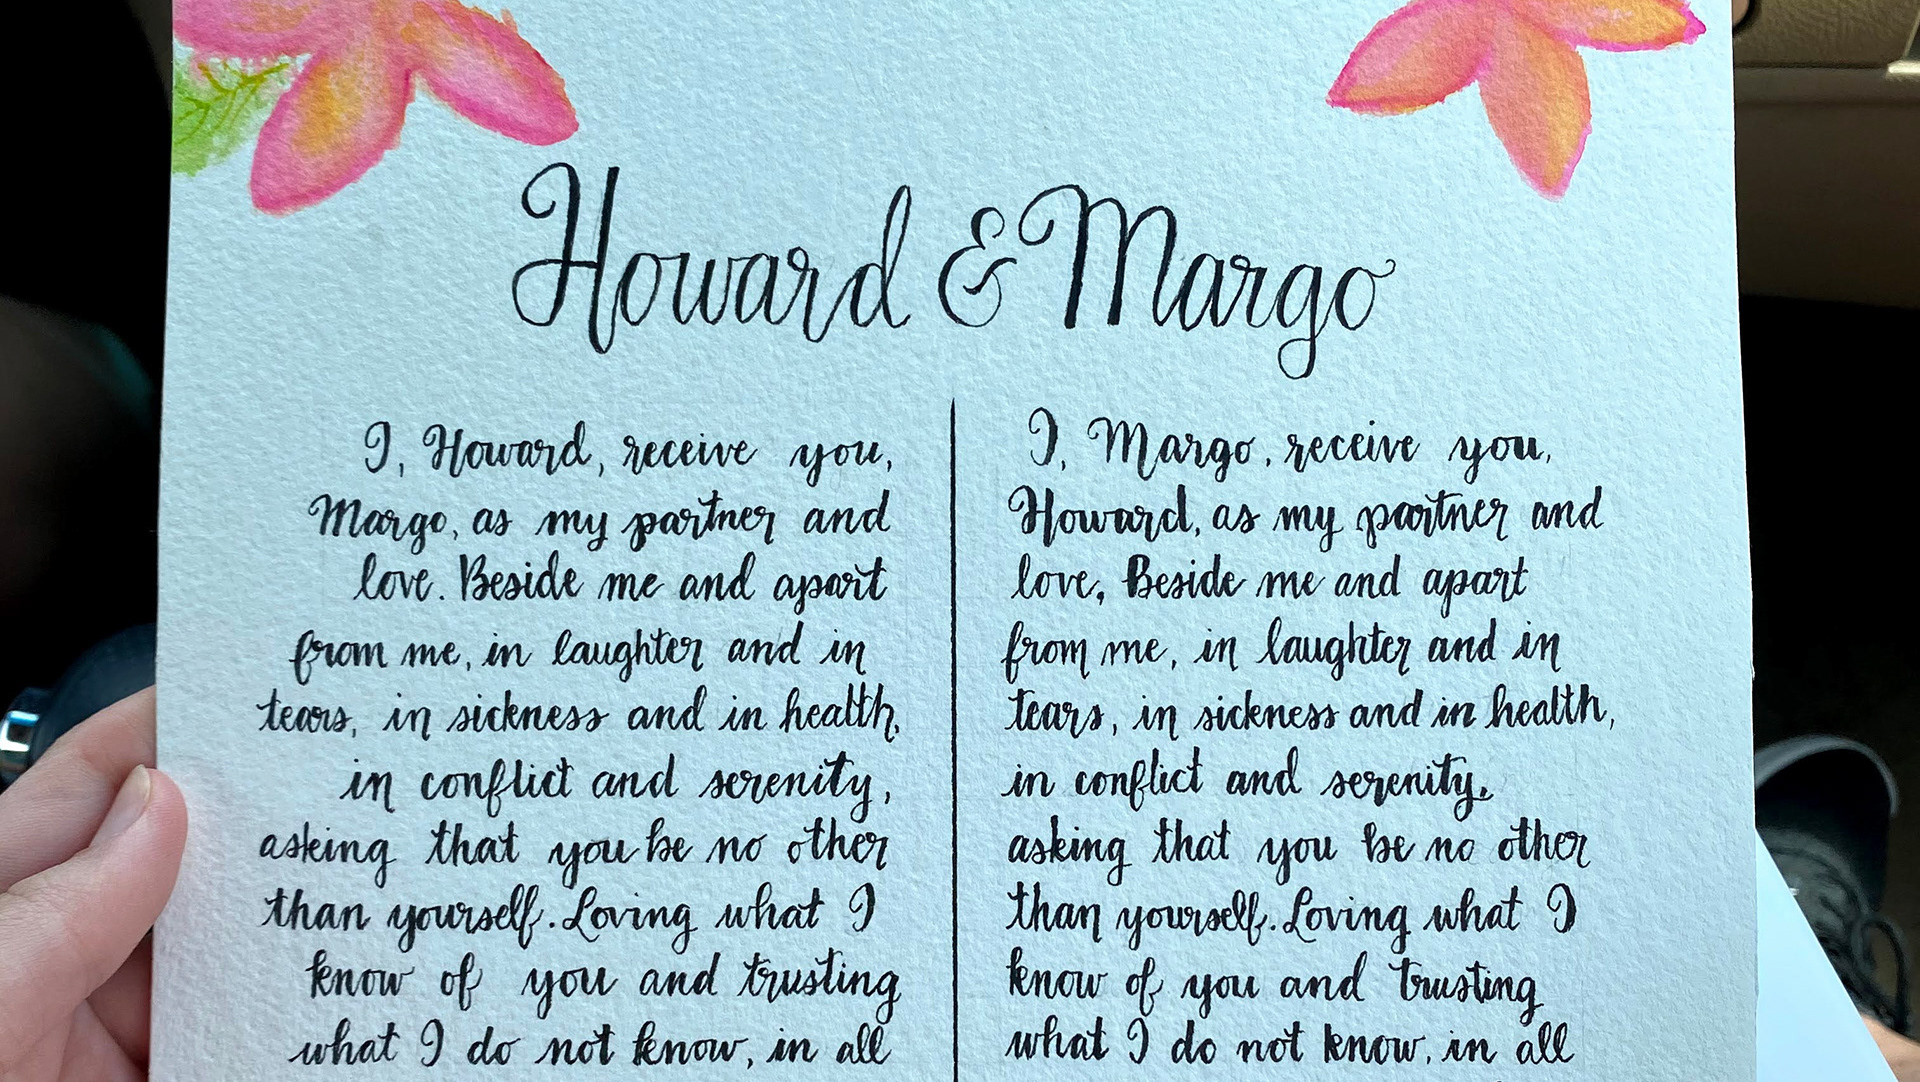 Howard & Margo
I, Howard, receive you,
Margo, as my partner and
love. Beside me and apart
from me, in laughter and in
tears, in sickness and in health,
in conflict and serenity,
asking that you be no other
than yourself. Loving what I
know of you and trusting
what I do not know, in all
I, Margo, receive you,
Howard, as my partner and
love, Beside me and apart
from me, in laughter and in
tears, in sickness and in health,
in conflict and serenity,
asking that you be no other
than yourself. Loving what I
know of you and trusting
what I do not know, in all